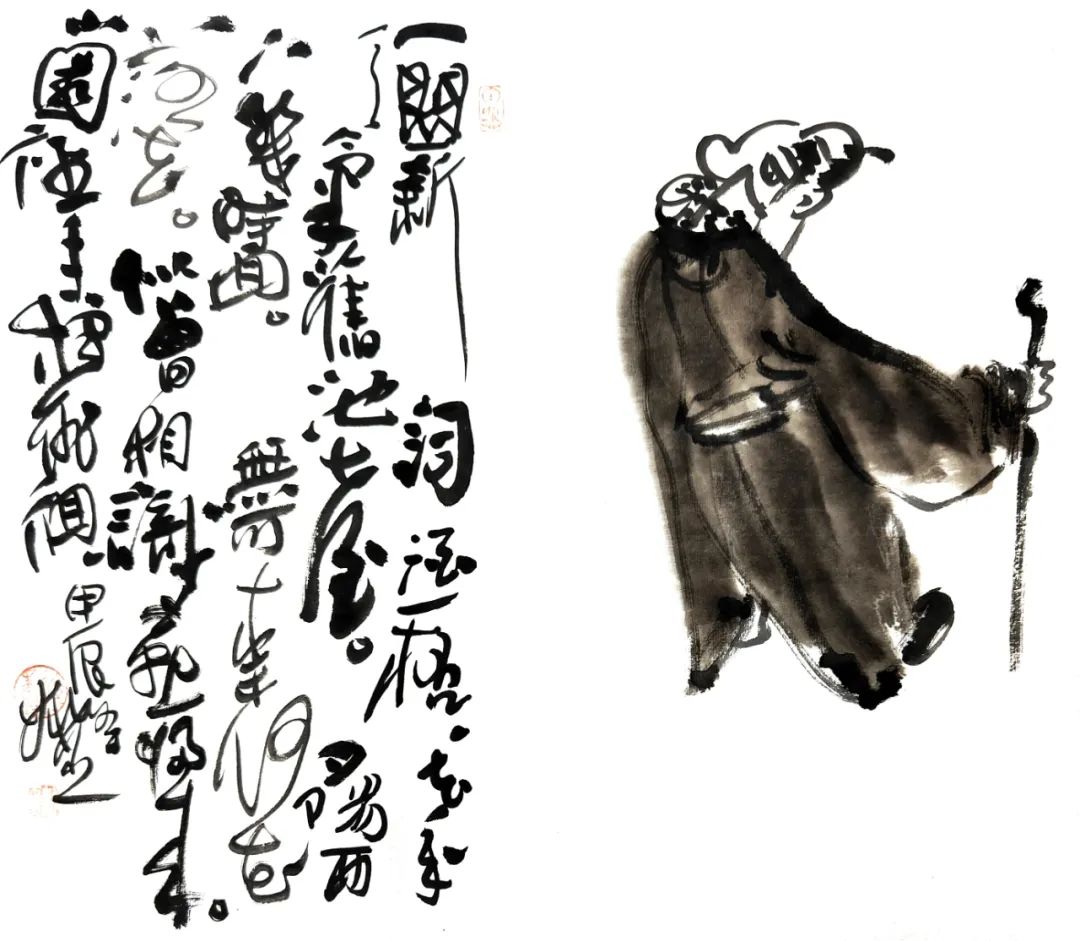 一曲新詞酒一杯。去年
天氣舊池臺。夕陽西
下幾時回。無可奈何花
落去。似曾相識燕歸來。
小園香徑獨徘徊。甲辰